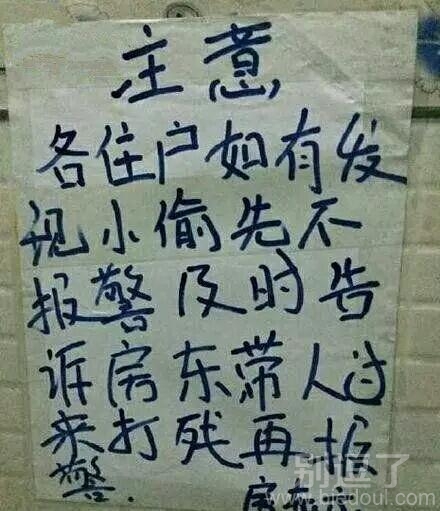 注意
各住户如有发
现小偷先不
报警及时告
诉房东带人过
来打残再报
警.
房东
别逗了
www.biedoul.com